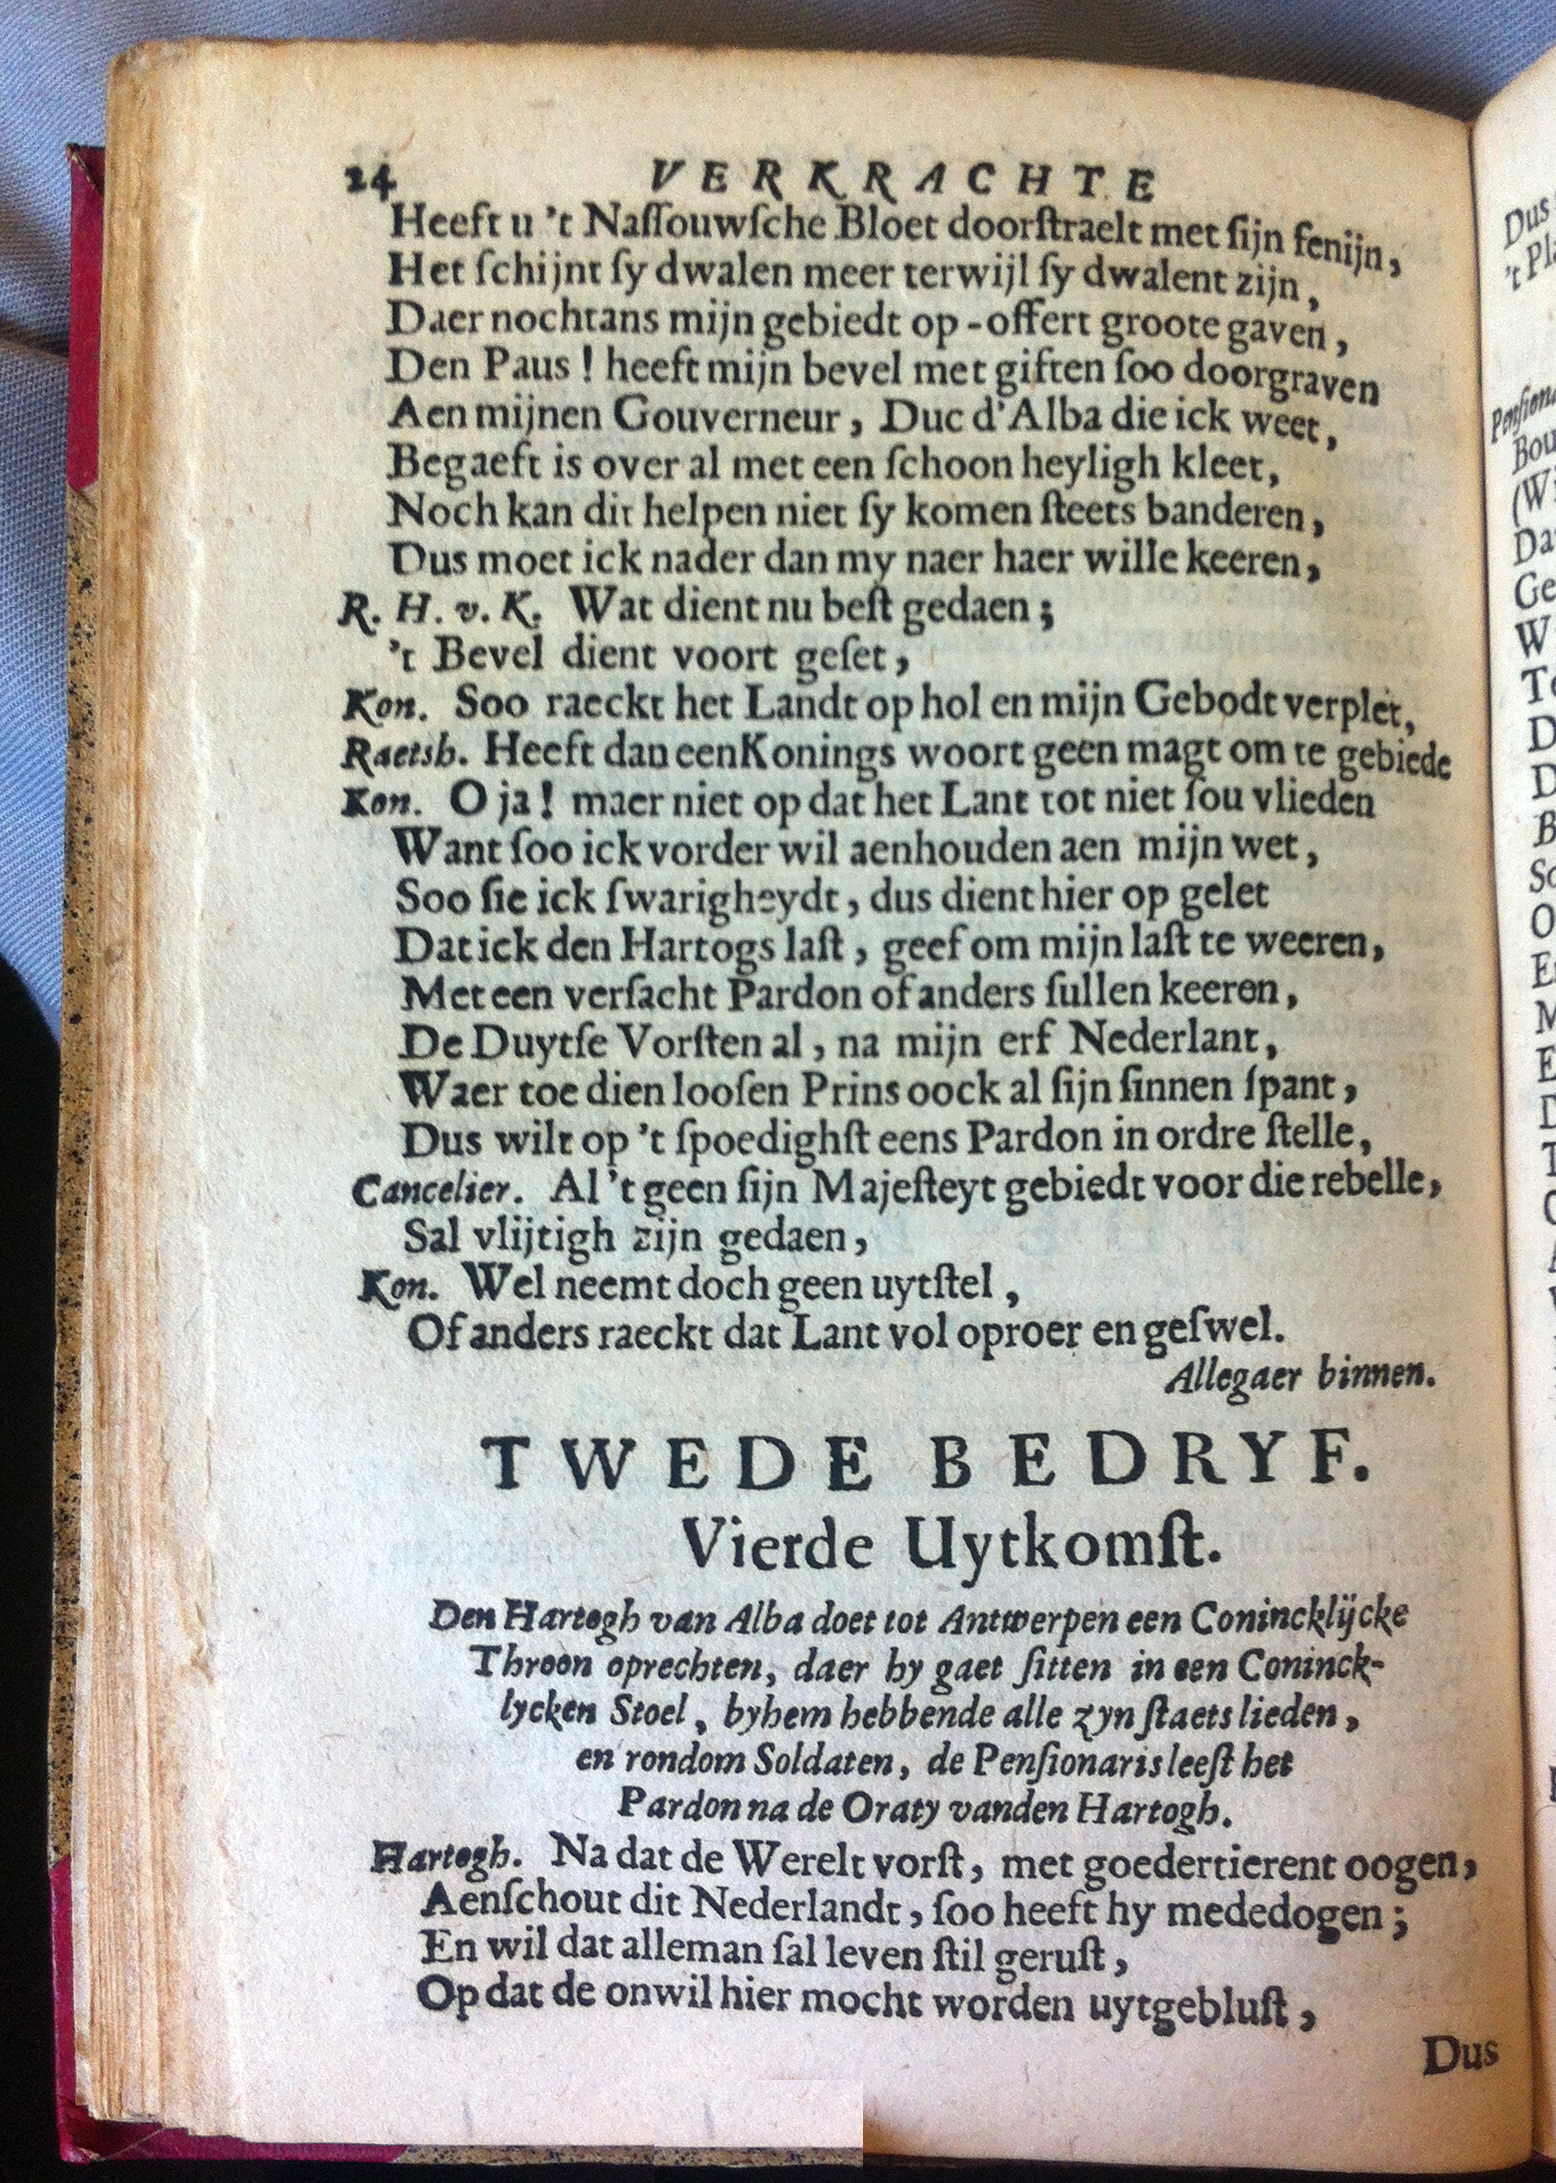 24 VERKRACHTE
Heeft u 't Naſſouwſche Bloet doorſtraelt met ſijn fenijn,
Het ſchijnt ſy dwalen meer terwijl ſy dwalent zijn,
Daer nochtans mijn gebiedt op-offert groote gaven,
Den Paus! heeft mijn bevel met giften ſoo doorgraven
Aen mijnen Gouverneur, Duc d'Alba die ick weet,
Begaeft is over al met een ſchoon heyligh kleet,
Noch kan dit helpen niet ſy komen ſteets banderen,
Dus moet ick nader dan my naer haer wille keeren,
R. H. v. K. Wat dient nu beſt gedaen;
't Bevel dient voort geſet,
Kon. Soo raeckt het Landt op hol en mijn Gebodt verplet,
Raetsh. Heeft dan een Konings woort geen magt om te gebiede
Kon. O ja! maer niet op dat het Lant tot niet ſou vlieden
Want ſoo ick vorder wil aenhouden aen mijn wet,
Soo ſie ick ſwarigheydt, dus dient hier op gelet
Dat ick den Hartogs laſt, geef om mijn laſt te weeren,
Met een verſacht Pardon of anders ſullen keeren,
De Duytſe Vorſten al, na mijn erf Nederlant,
Waer toe dien looſen Prins oock al ſijn ſinnen ſpant,
Dus wilt op 't ſpoedighſt eens Pardon in ordre ſtelle,
Cancelier. Al 't geen ſijn Majeſteyt gebiedt voor die rebelle,
Sal vlijtigh zijn gedaen,
Kon. Wel neemt doch geen uytſtel,
Of anders raeckt dat Lant vol oproer en geſwel.
Allegaer binnen.
TWEDE BEDRYF.
Vierde Uytkomſt.
Den Hartogh van Alba doet tot Antwerpen een Conincklijcke
Throon oprechten, daer hy gaet ſitten in een Coninck-
lycken Stoel, by hem hebbende alle zyn ſtaets lieden,
en rondom Soldaten, de Penſionaris leeſt het
Pardon na de Oraty vanden Hartogh.
Hartogh. Na dat de Werelt vorſt, met goedertierent oogen,
Aenſchout dit Nederlandt, ſoo heeft hy mededogen;
En wil dat alleman ſal leven ſtil geruſt,
Op dat de onwil hier mocht worden uytgebluſt,
Dus
Dus
't Pla
Penſiona
Bou
(Wi
Da
Ge
W
Te
D
D
B
So
O
E
M
E
D
T